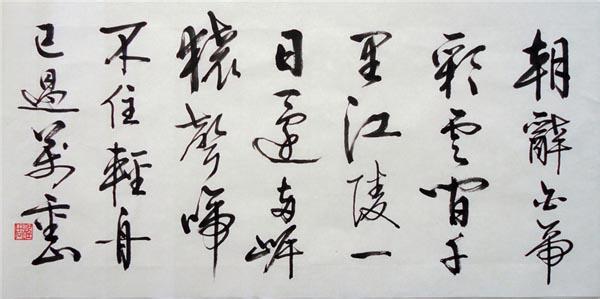 朝辭白帝
彩雲間千
里江陵一
日還兩岸
猿聲啼
不住輕舟
已過萬重山